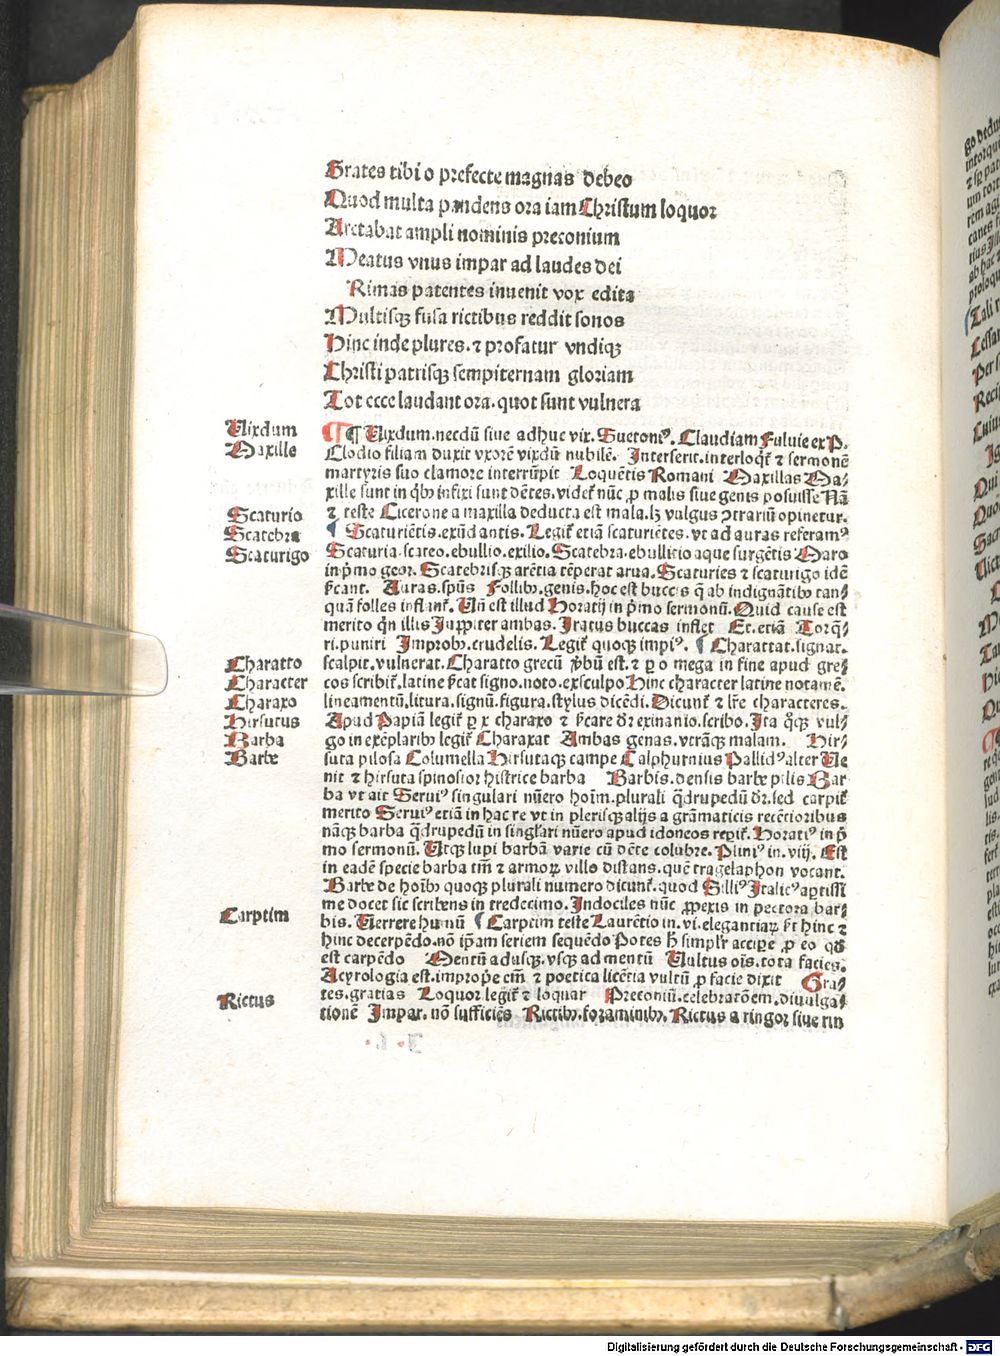 Grates tibi o prefecte magnas debeo
Quod multa pandens ora iam Christum loquor
Arctabat ampli nominis preconium
Meatus vnus impar ad laudes dei
Rimas patentes inuenit vox edita
Multisqꝫ fusa rictibus reddit sonos
Hinc inde plures. ⁊ profatur vndiqꝫ
Christi patrisqꝫ sempiternam gloriam
Tot ecce laudant ora. quot sunt vulnera
Uixdum
Maxille
Scaturio
Scatebra
Scaturigo
Charatto
Character
Charaxo
Hirsutus
Barba
Barbe
Carptim
Rictus
¶ Uixdum. necdū siue adhuc vix. Suetoniꝰ. Claudiam Fuluie ex P.
Clodio filiam duxit vxorē vixdū nubilē. Interserit. interloqͥt̄ ⁊ sermonē
martyris suo clamore interrūpit Loquētis Romani Maxillas Ma-
xille sunt in qͥbꝰ infixi sunt dētes. videt̄ nūc ꝓ malis siue genis posuisse Nā
⁊ teste Cicerone a maxilla deducta est mala. lꝫ vulgus ꝯtrariū opinetur.
¶ Scaturiētis. exūdātis. Legit̄ etiā scaturiētes. vt ad auras referamꝰ
Scaturia. scateo. ebullio. exilio. Scatebra. ebullitio aque surgētis Maro
in pͥmo geor. Scatebrisqꝫ arētia tēperat arua. Scaturies ⁊ scaturigo idē
ſcant. Auras. spūs Follibꝰ. genis. hoc est buccis q̄ ab indignātibꝰ tan-
quā folles inflant̄. Uñ est illud Horatij in pͥmo sermonū. Quid cause est
merito qͥn illis Juppiter ambas. Iratus buccas inflet Et. etiā Torq̄-
ri. puniri Improbꝰ. crudelis. Legit̄ quoqꝫ impiꝰ. ¶ Charattat. signat.
scalpit. vulnerat. Charatto grecū ꝟbū est. ⁊ ꝑ o mega in fine apud gre-
cos scribit̄. latine ſcat signo. noto. exsculpo Hinc character latine notamē.
lineamentū. litura. signū. figura. stylus dicēdi. Dicunt̄ ⁊ lr̄e characteres.
Apud Papiā legit̄ ꝑ x charaxo ⁊ ſcare dr̄ exinanio. scribo. Ita qͥqꝫ vul-
go in exēplaribꝰ legit̄ Charaxat Ambas genas. vtrāqꝫ malam. Hir-
suta pilosa Columella Hirsutaqꝫ campe Calphurnius Pallidꝰ alter Ue
nit ⁊ hirsuta spinosior histrice barba Barbis. densis barbe pilis Bar
ba vt ait Seruiꝰ singulari nūero hoīm. plurali q̄drupedū dr̄. sed carpit̄
merito Seruiꝰ etiā in hac re vt in plerisqꝫ alijs a grāmaticis recētioribus
nāqꝫ barba q̄drupedū in singl̄ari nūero apud idoneos reꝑit̄. Horatiꝰ in pͥ
mo sermonū. Utqꝫ lupi barbā varie cū dēte colubre. Pliniꝰ in. viij. Est
in eadē specie barba tm̄ ⁊ armoꝝ villo distans. quē tragelaphon vocant.
Barbe de hoībꝰ quoqꝫ plurali numero dicunt̄. quod Silliꝰ Italicꝰ aptissi
me docet sic scribens in tredecimo. Indociles nūc ꝓpexis in pectora bar-
bis. Uerrere humū ¶ Carptim teste Laurētio in. vi. elegantiaꝝ ſt hinc ⁊
hinc decerpēdo. nō ip̄am seriem sequēdo Potes h̄ simpl̄r accipe ꝓ eo qd̄
est carpēdo Mentū adusqꝫ. vsqꝫ ad mentū Uultus oīs. tota facies.
Acyrologia est. impropē tm̄ ⁊ poetica licētia vultū ꝓ facie dixit Gra-
tes. gratias Loquor legit̄ ⁊ loquar Preconiū. celebratōem. diuulga-
tionē Impar. nō sufficiēs Rictibꝰ. foraminibꝰ. Rictus a ringor siue rin
Digitalisierung gefördert durch die Deutsche Forschungsgemeinschaft - DFG